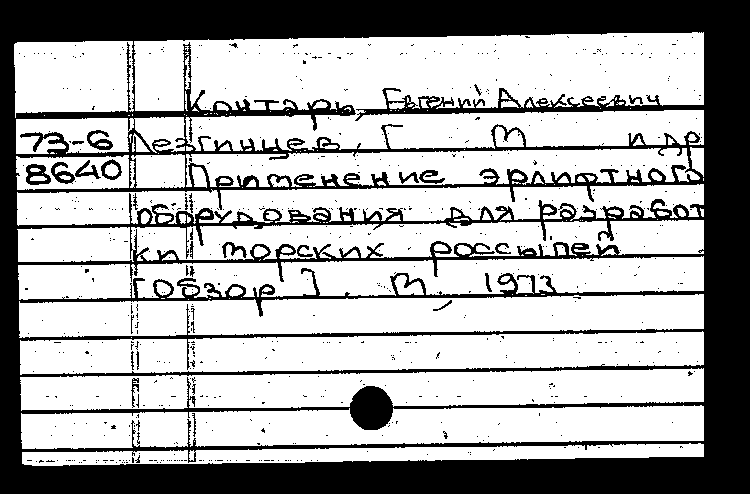 Контарь, Евгений Алексеевич
73-6 Лезгинцев, Г М и др
8640 Применение эрлифтного
оборудования для разработ
ки морских россыпей
[Обзор]. М, 1973